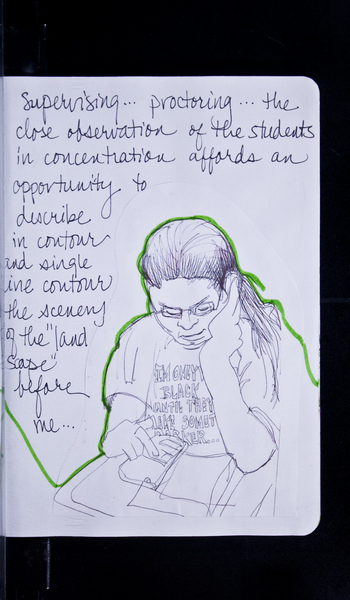 Supervising... proctoring... the
close observation of the students
in concentration affords an
opportunity to
describe
in contour
and single
line contour
the scenery
of the "land
scape"
before
me...
I'M ONLY
BLACK
UNTIL THEY
MAKE SOMET
DARKER...